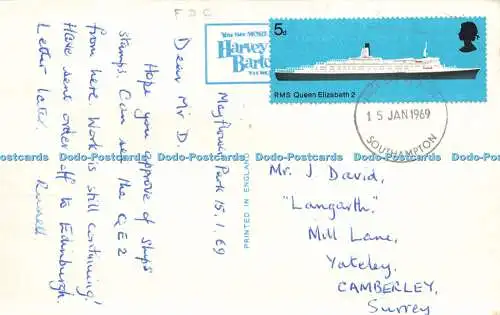 F D C
Mayflower Park 15.1.69
Dear Mr D.
Hope you approve of ships
stamps. Can see the QE2
from here. Work is still continuing!
Have sent order off to Edinburgh.
Letter later.
Russell
Harvey
PRINTED IN ENGLAND
5d
RMS Queen Elizabeth 2
15 JAN 1969
SOUTHAMPTON
Mr. J David,
"Langarth,"
Mill Lane,
Yateley,
CAMBERLEY,
Surrey
Dodo-Postcards Dodo-Postcards Dodo-Postcards Dodo-Postcards Dodo-Postcards Dodo-Postcards